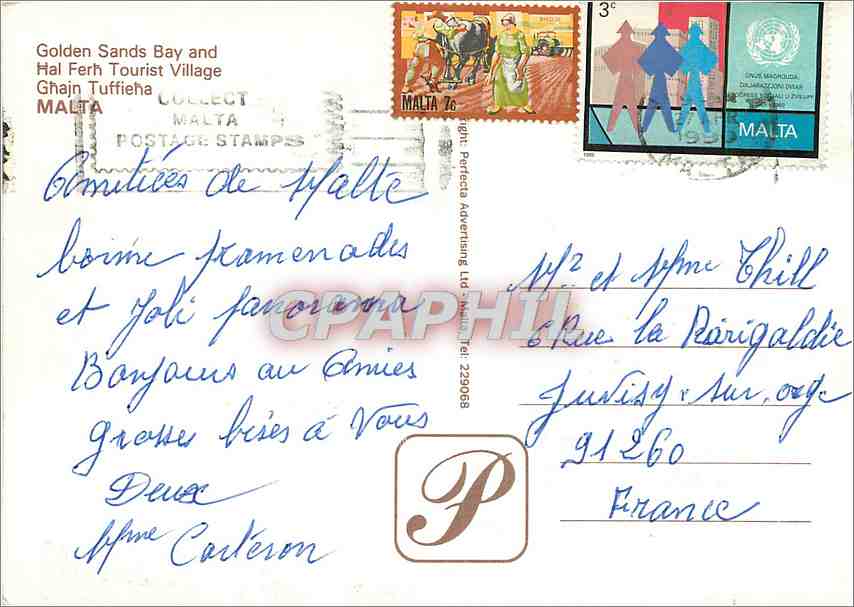 Golden Sands Bay and
Ħal Ferħ Tourist Village
Għajn Tuffieħa
MALTA
COLLECT
MALTA
POSTAGE STAMPS
MALTA 7c
3c
MALTA
Perfecta Advertising Ltd - Malta. Tel: 229068
Amitiées de Malte
bonne pramenades
et Joli panorama
Bonjours au Amies
grosses bises à Vous
Deux
Mme Carteron
Mr et Mme Thill
6 Rue la Rarigaldie
Juvisy sur orge
91260
France
P
CPAPHIL